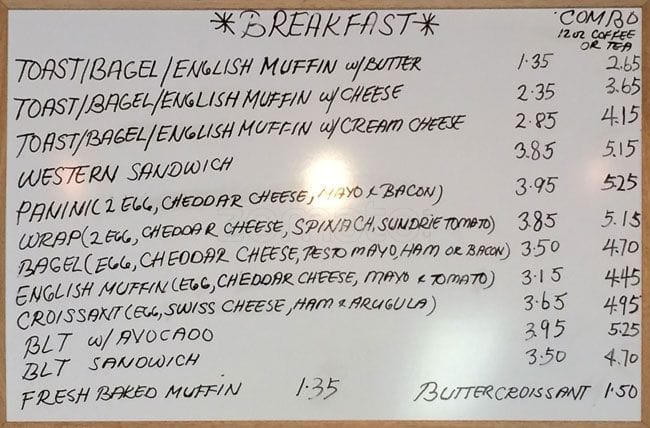 *BREAKFAST*
COMBO
12oz COFFEE
OR TEA
TOAST/BAGEL/ENGLISH MUFFIN w/BUTTER 1.35 2.65
TOAST/BAGEL/ENGLISH MUFFIN w/CHEESE 2.35 3.65
TOAST/BAGEL/ENGLISH MUFFIN w/CREAM CHEESE 2.85 4.15
WESTERN SANDWICH 3.85 5.15
PANINI(2 EGG, CHEDDAR CHEESE, MAYO & BACON) 3.95 5.25
WRAP(2 EGG, CHEDDAR CHEESE, SPINACH, SUNDRIE TOMATO) 3.85 5.15
BAGEL(EGG, CHEDDAR CHEESE, PESTO MAYO, HAM OR BACON) 3.50 4.70
ENGLISH MUFFIN(EGG, CHEDDAR CHEESE, MAYO & TOMATO) 3.15 4.45
CROISSANT(EGG, SWISS CHEESE, HAM & ARUGULA) 3.65 4.95
BLT W/ AVOCADO 3.95 5.25
BLT SANDWICH 3.50 4.70
FRESH BAKED MUFFIN 1.35 BUTTERCROISSANT 1.50